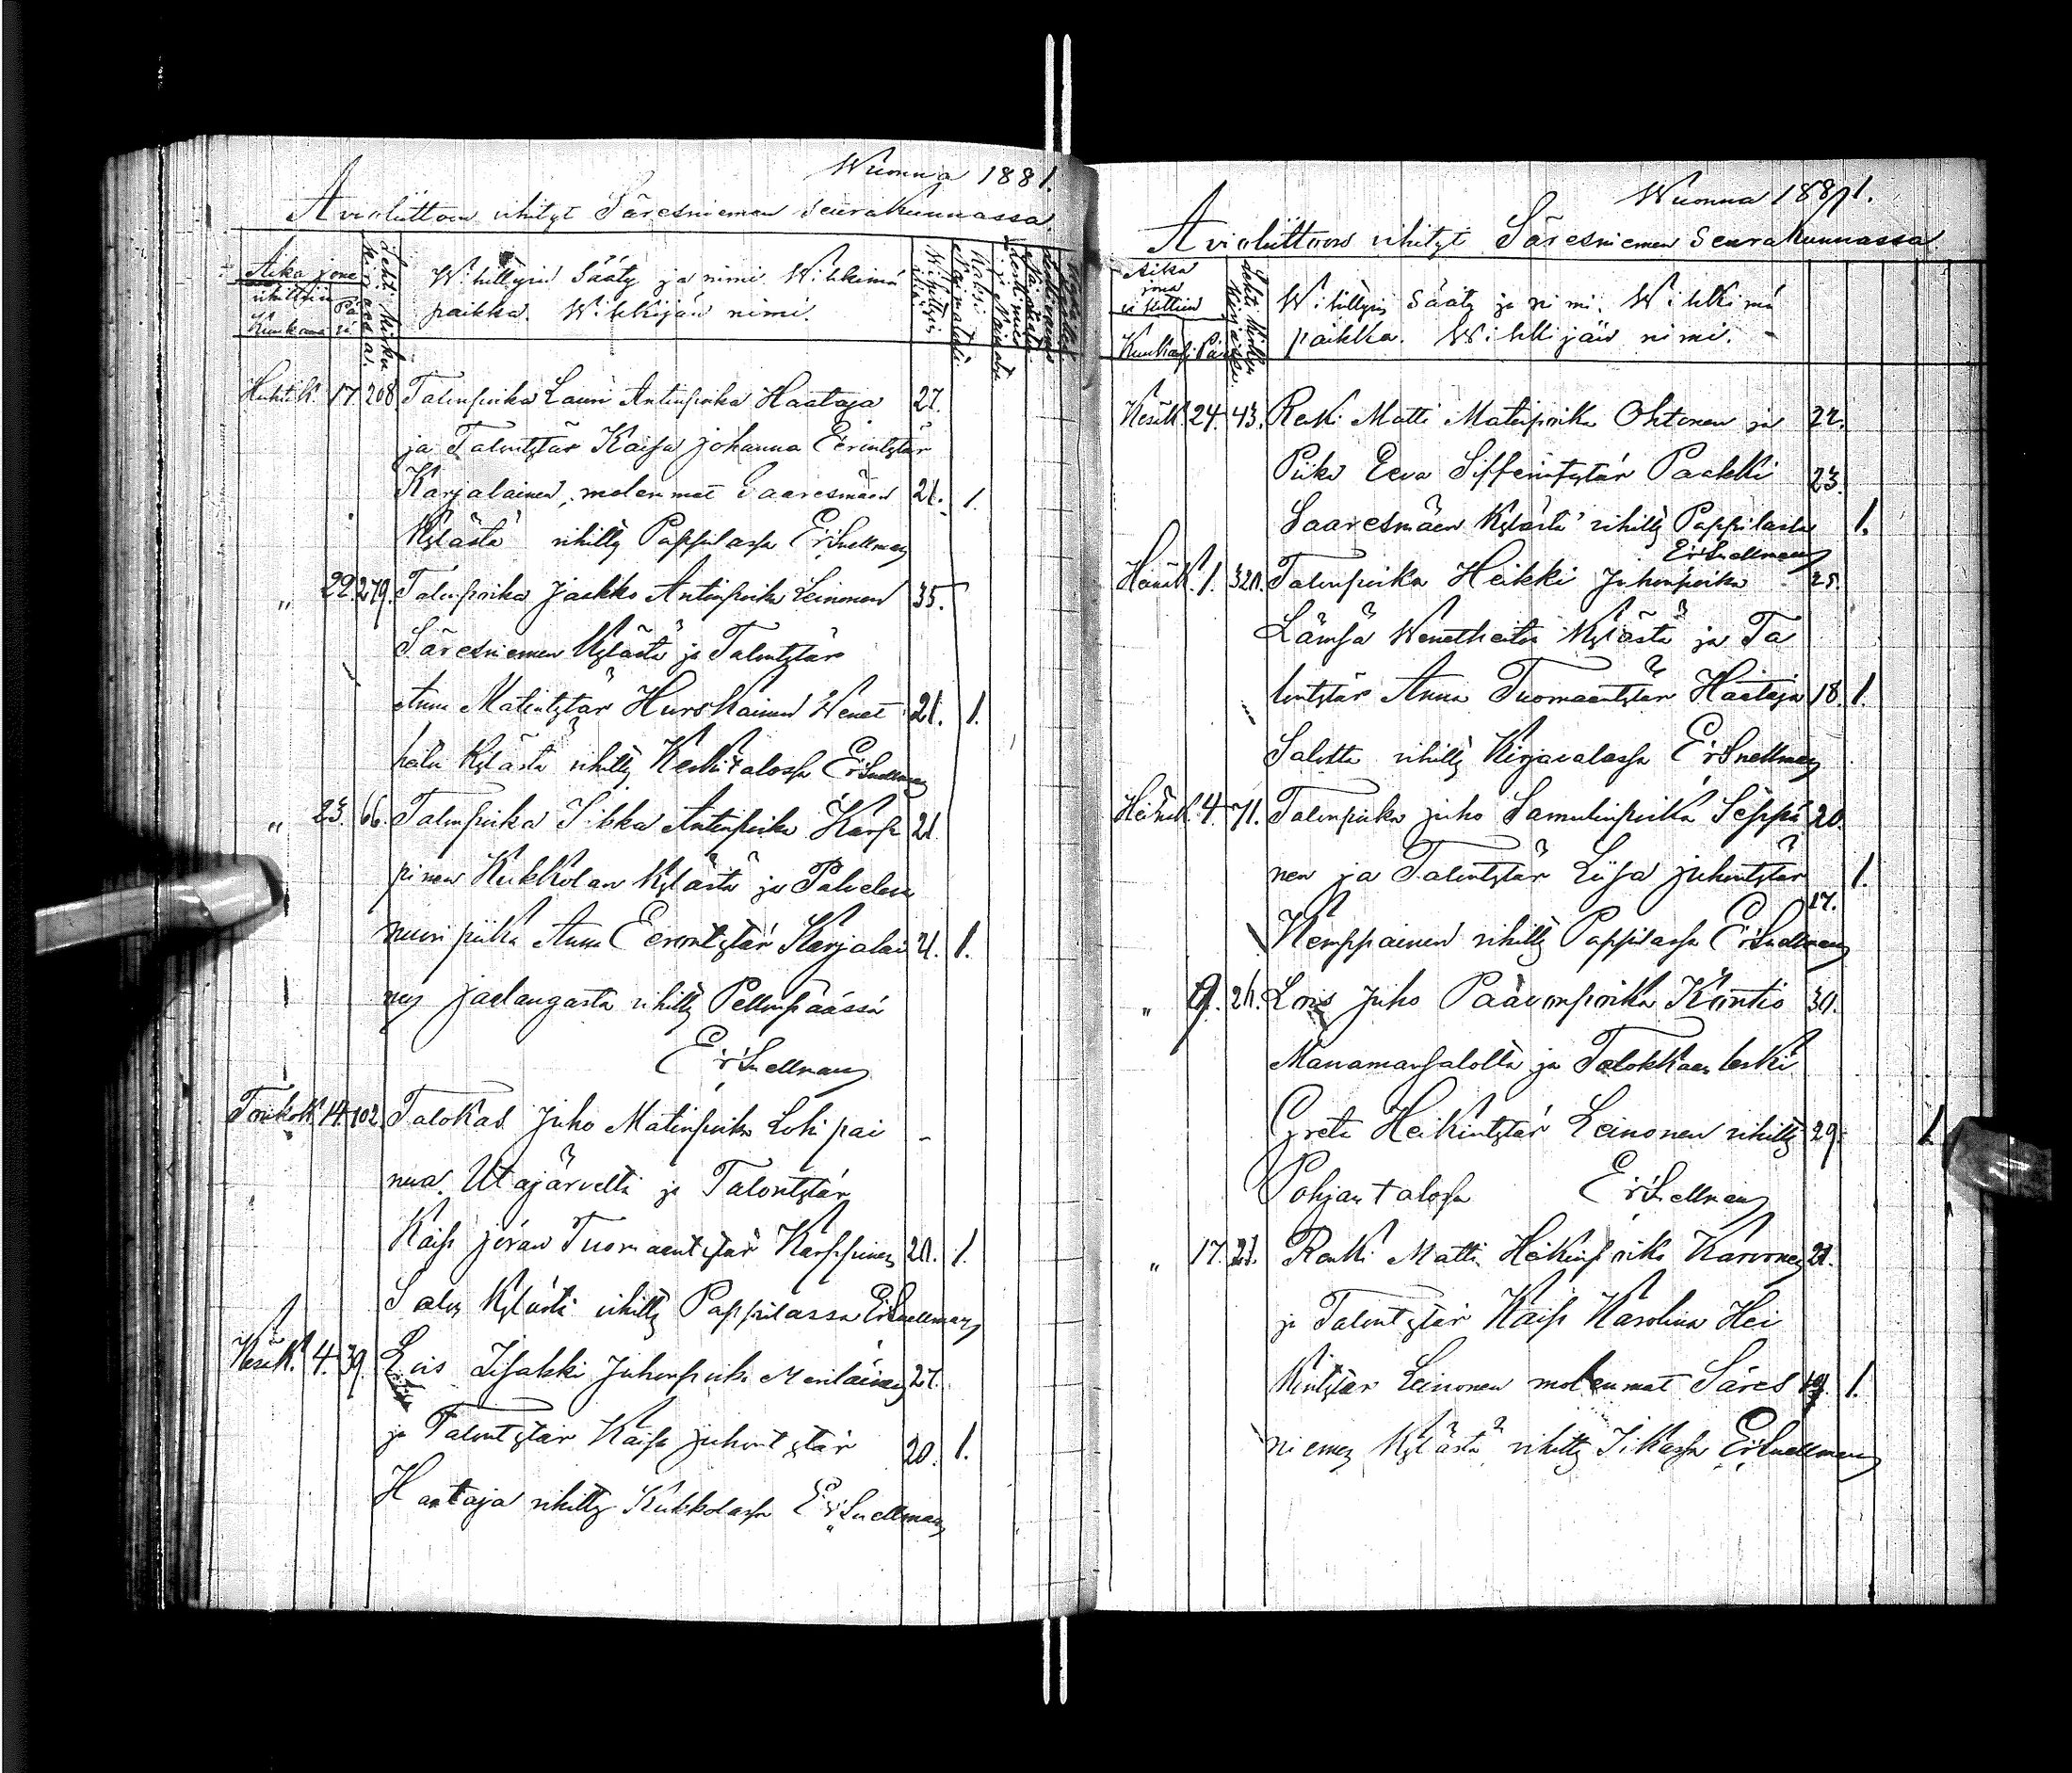 Wuonna 1881.
Avioliittoon vihityt Säresniemen seurakunnassa.
Aika jona
vihittiin
Kuukausi Päivä
Lehti kirkon kirjassa.
Wihittyin Sääty ja nimi. Wihkimä
paikka. Wihkijän nimi.
Huhtik. 17. 208. Talonpoika Lauri Antinpoika Haataja 27.
ja Talontytär Kaisa Johanna Eerintytär
Karjalainen, molemmat Saaresmäen 21. 1.
Kylästä vihitty Pappilassa Er. Snellman
" 22. 279. Talonpoika Jaakko Antinpoika Leinonen 35.
Säresniemen Kylästä ja Talontytär
Anna Matintytär Hurskainen Wenet 21. 1.
heitu Kylästä vihitty Keskitalossa Er. Snellman
" 23. 66. Talonpoika Iikka Antinpoika Karp 21.
pinen Kukkolan Kylästä ja Palvelus
piika Anna Eerontytär Karjalai 21. 1.
nen Jaalangasta vihitty Pellonpäässä
Er. Snellman
Toukok. 14. 102. Talokas Juho Matinpoika Lohi pai -
nua Utajärveltä ja Talontytär
Kaisa Tuomaantytär Karppinen 20. 1.
Salon Kylästä vihitty Pappilassa Er. Snellman
Kesäk. 4. 39. Lois Iisakki Juhonpoika Meriläinen 27.
ja Talontytär Kaisa Juhontytär 20. 1.
Haataja vihitty Kukkolassa Er. Snellman
Wuonna 1881.
Avioliittoon vihityt Säresniemen Seurakunnassa
Aika
jona
vihittiin
Kuukausi Päivä
Lehti kirkon kirjassa.
Wihittyin Sääty ja nimi. Wihkimä
paikka. Wihkijän nimi. -
Kesäk. 24. 43. Renki Matti Matinpoika Ohtonen ja 22.
Piika Eeva Siffrintytär Paakki 23.
Saaresmäen Kylästä vihitty Pappilassa 1.
Er. Snellman
Heinäk. 1. 320. Talonpoika Heikki Juhonpoika 25.
Lämsä Wenetheitu Kylästä ja Ta
lontytär Anna Tuomaantytär Haataja 18. 1.
Salolta vihitty Kirjavalassa Er. Snellman
Heinäk. 4. 71. Talonpoika Juho Samulinpoika Seppä 20.
nen ja Talontytär Liisa Juhontytär 1.
17.
Kemppainen vihitty Pappilassa Er. Snellman
" 9. 26. Lois Juho Paavonpoika Kontio 30.
Manamansalolta ja Talokkaan leski
Greta Heikintytär Leinonen vihitty 29. 1.
Pohjantalossa Er. Snellman
" 17. 21. Renki Matti Heikinpoika Karvonen 21.
ja Talontytär Kaisa Karolina Hei
kintytär Leinonen molemmat Säres 19. 1.
niemen Kylästä vihitty Iikassa Er. Snellman